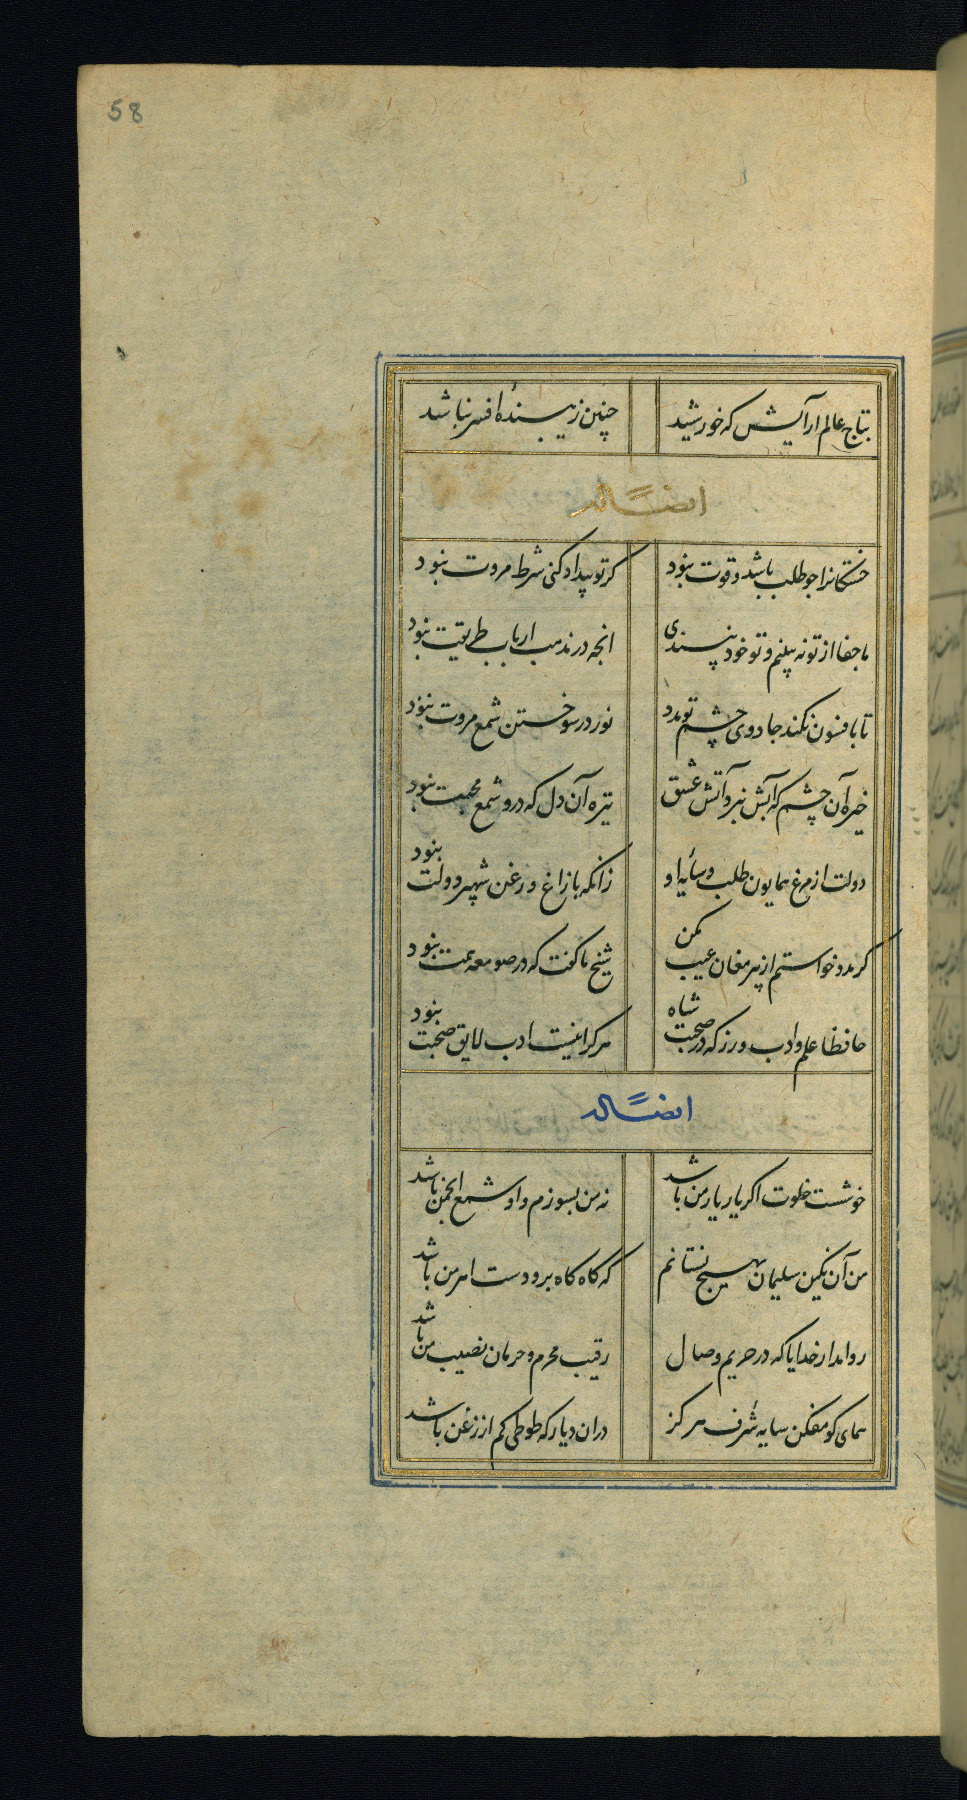 58
بتاج عالم آرایش که خورشید چنین زیبندهٔ افسر نباشد
ایضاً له
خستگانرا چو طلب باشد و قوت نبود کر تو بیداد کنی شرط مروت نبود
ما جفا از تو نه بینم و تو خود نپسندی انچه در مذهب ارباب طریقت نبود
تا بافسون نکند جادوی چشم تو مدد نور در سوختن شمع مروت نبود
خیره آن چشم که آبش نبرد آتش عشق تیره آن دل که درو شمع محبت نبود
دولت از مرغ همایون طلب و سایهٔ او زانکه با زاغ و زغن شهپر دولت نبود
کر مدد خواستم از پیر مغان عیب مکن شیخ ما کفت که در صومعه همت نبود
حافظا علم و ادب ورز که در صحبت شاه هرکرا نیست ادب لایق صحبت نبود
ایضاً له
خوشست خلوت اکر یار یار من باشد نه من بسوزم و او شمع انجمن باشد
من آن نکین سلیمان بهیچ نستانم که کاه کاه برو دست اهرمن باشد
روا مدار خدایا که در حریم وصال رقیب محرم و حرمان نصیب من باشد
همای کو مفکن سایه شرف هرکز دران دیار که طوطی کم از زغن باشد